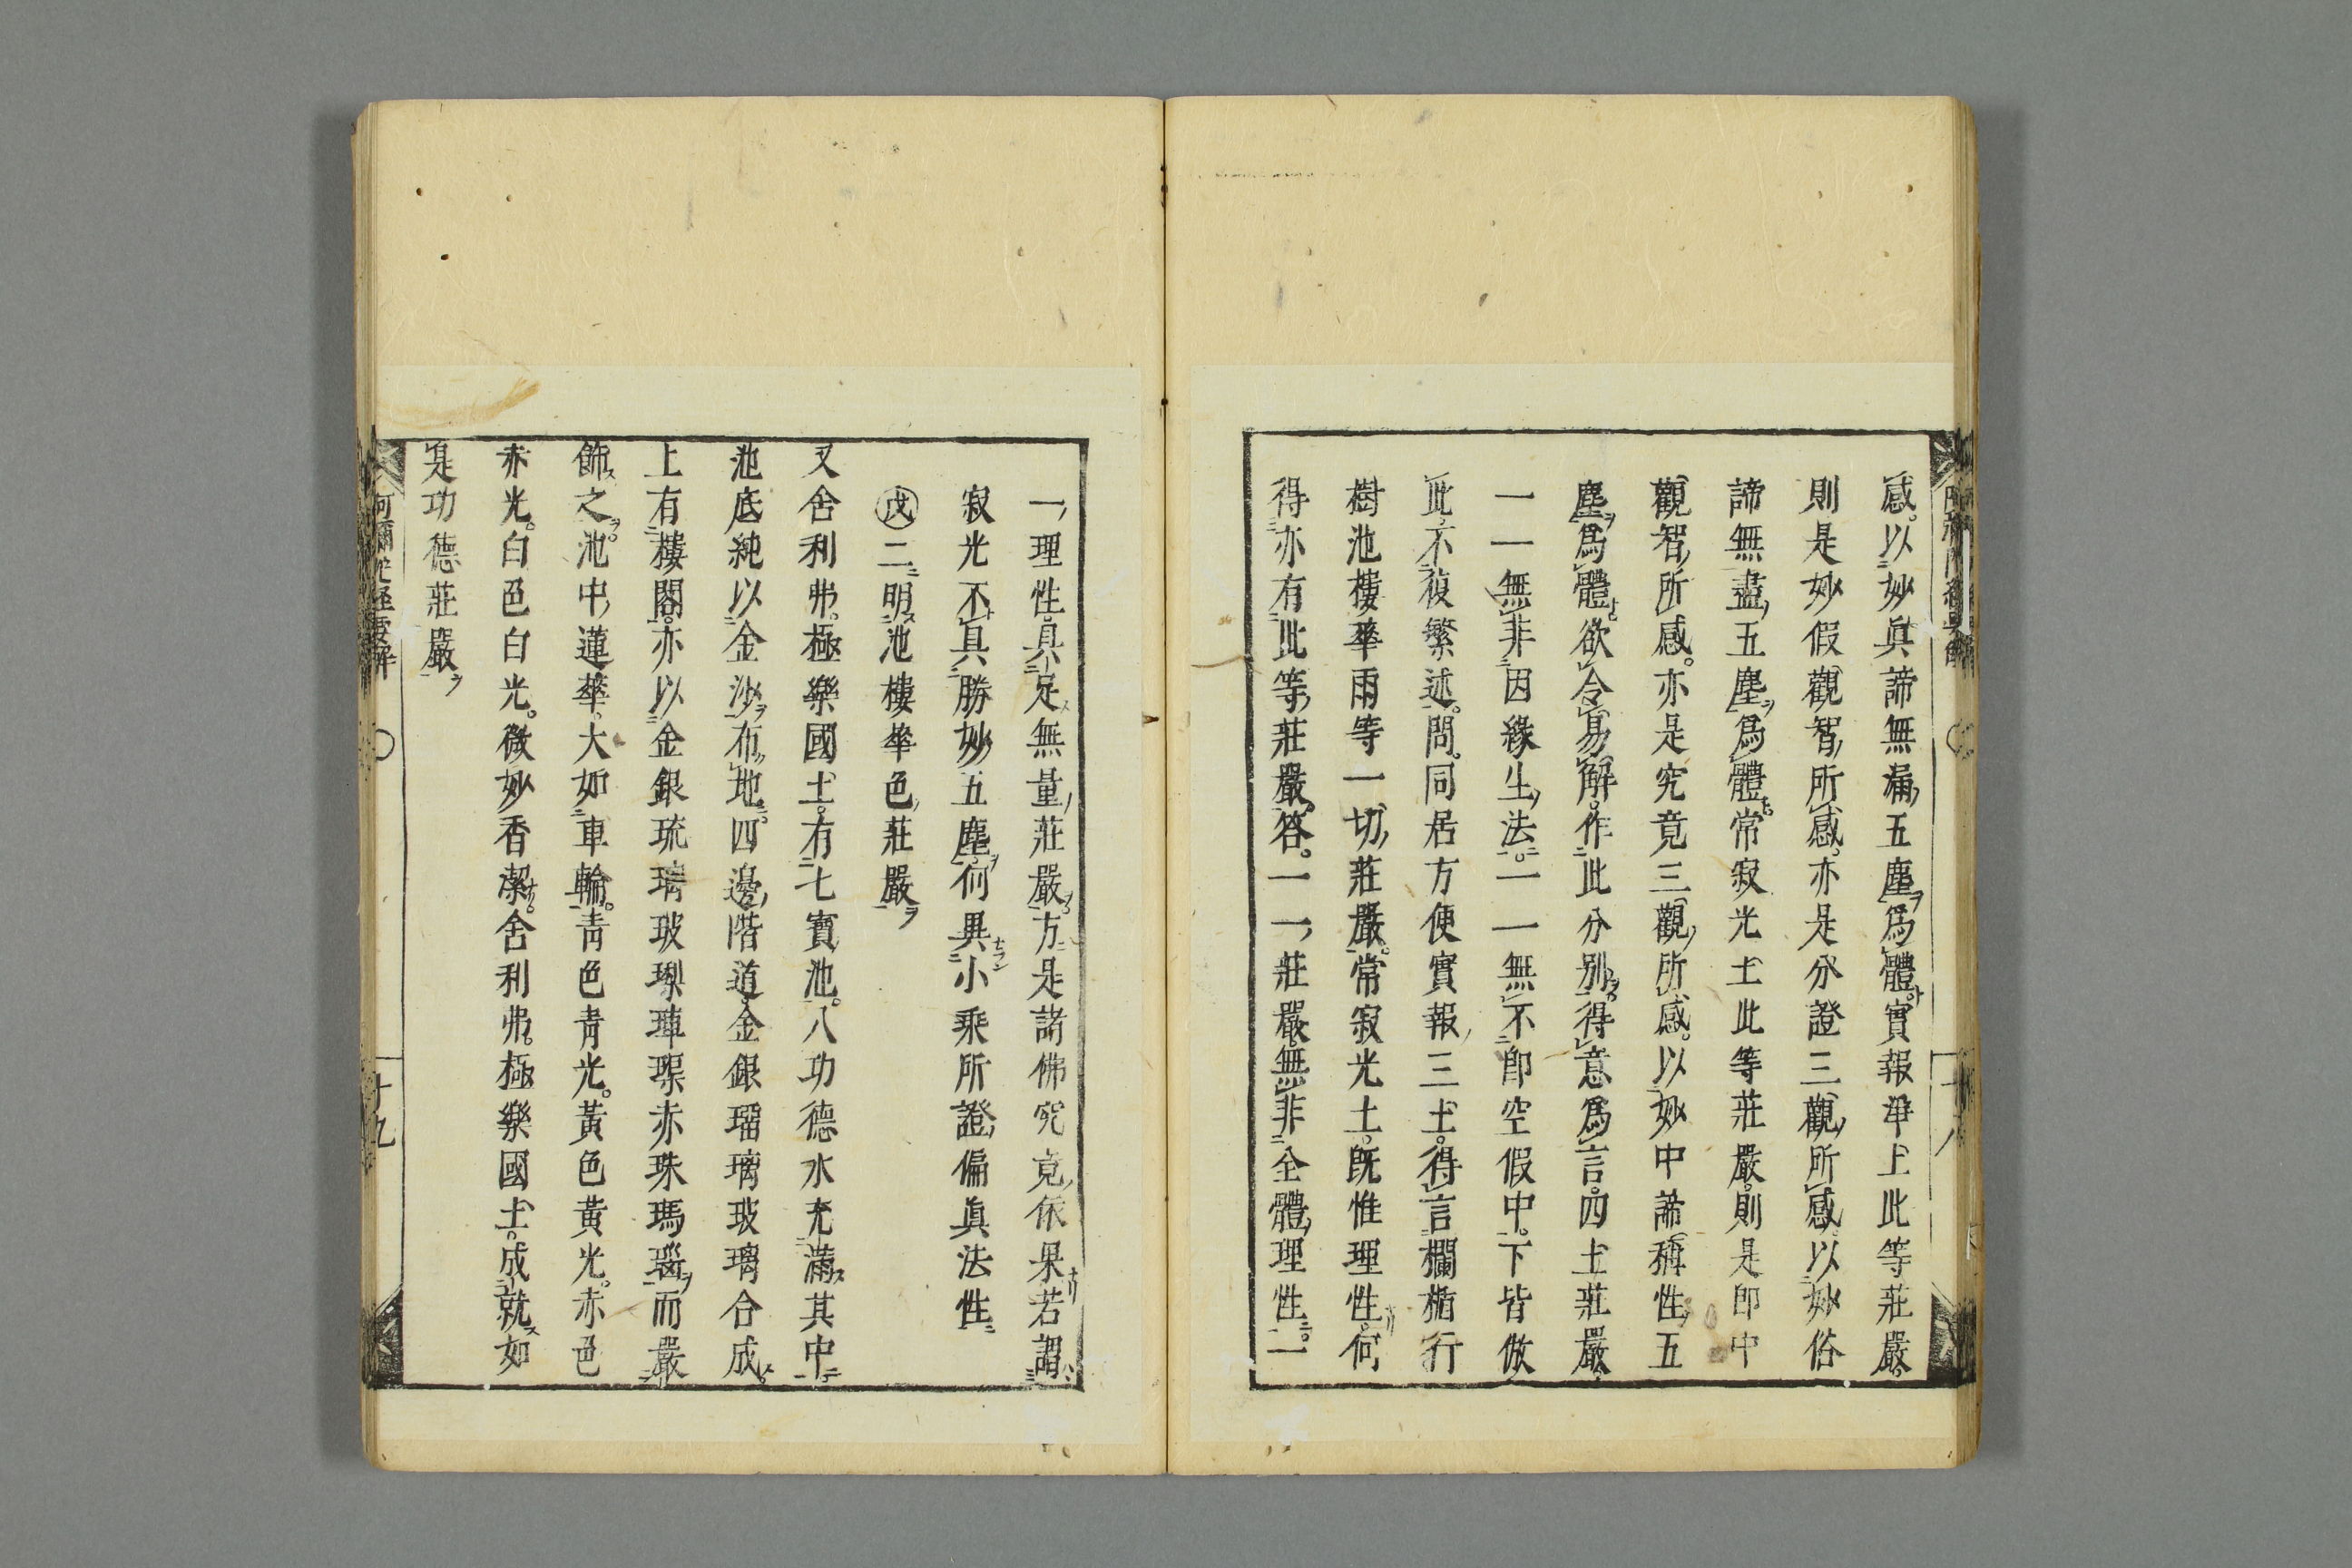 感。以妙眞諦無漏五塵爲體。實報淨土此等莊嚴。
則是妙假觀智所感。亦是分證三觀所感。以妙俗
諦無盡五塵爲體。常寂光土此等莊嚴。則是即中
觀智所感。亦是究竟三觀所感。以妙中諦稱性五
塵爲體。欲令易解。作此分別。得意爲言。四土莊嚴。
一一無非因緣生法。一一無不即空假中。下皆倣
此。不復繁述。問。同居方便實報三土。得言欄楯行
樹池樓華雨等一切莊嚴。常寂光土。旣惟理性。何
得亦有此等莊嚴。答。一一莊嚴。無非全體理性。一
一理性。具足無量莊嚴。方是諸佛究竟依果。若謂
寂光不具勝妙五塵。何異小乘所證偏眞法性
戊二明池樓華色莊嚴
又舍利弗。極樂國土。有七寶池。八功德水充滿其中
池底純以金沙布地。四邊階道。金銀瑠璃玻璃合成。
上有樓閣。亦以金銀琉璃玻瓈硨磲赤珠瑪瑙而嚴
飾之。池中蓮華。大如車輪。靑色靑光。黃色黃光。赤色
赤光。白色白光。微妙香潔。舍利弗。極樂國土。成就如
是功德莊嚴
阿彌陀經要解
十九